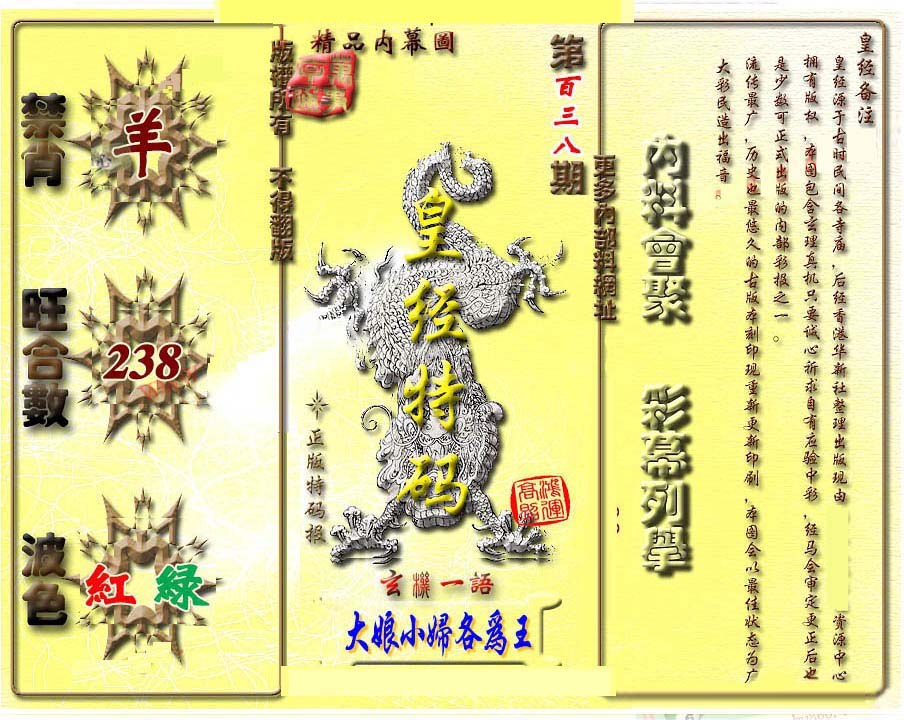 精品內幕圖
第百三八期
版權所有 不得翻版
更多內部料網址
禁肖
羊
旺合數
238
波色
紅 綠
皇经特码
正版特码报
鴻運高照
玄機一語
大娘小婦各爲王
內料會聚
彩幕列學
皇经备注
皇经源于古时民间各寺庙,后经香港华新社整理出版现由 资源中心
拥有版权,本图包含玄理真机只要诚心祈求自有应验中彩,经马会审定更正后也
是少数可正式出版的内部彩报之一。
流传最广,历史也最悠久的古版本刻印现重新更新印刷,本图会以最佳状态为广
大彩民造出福音